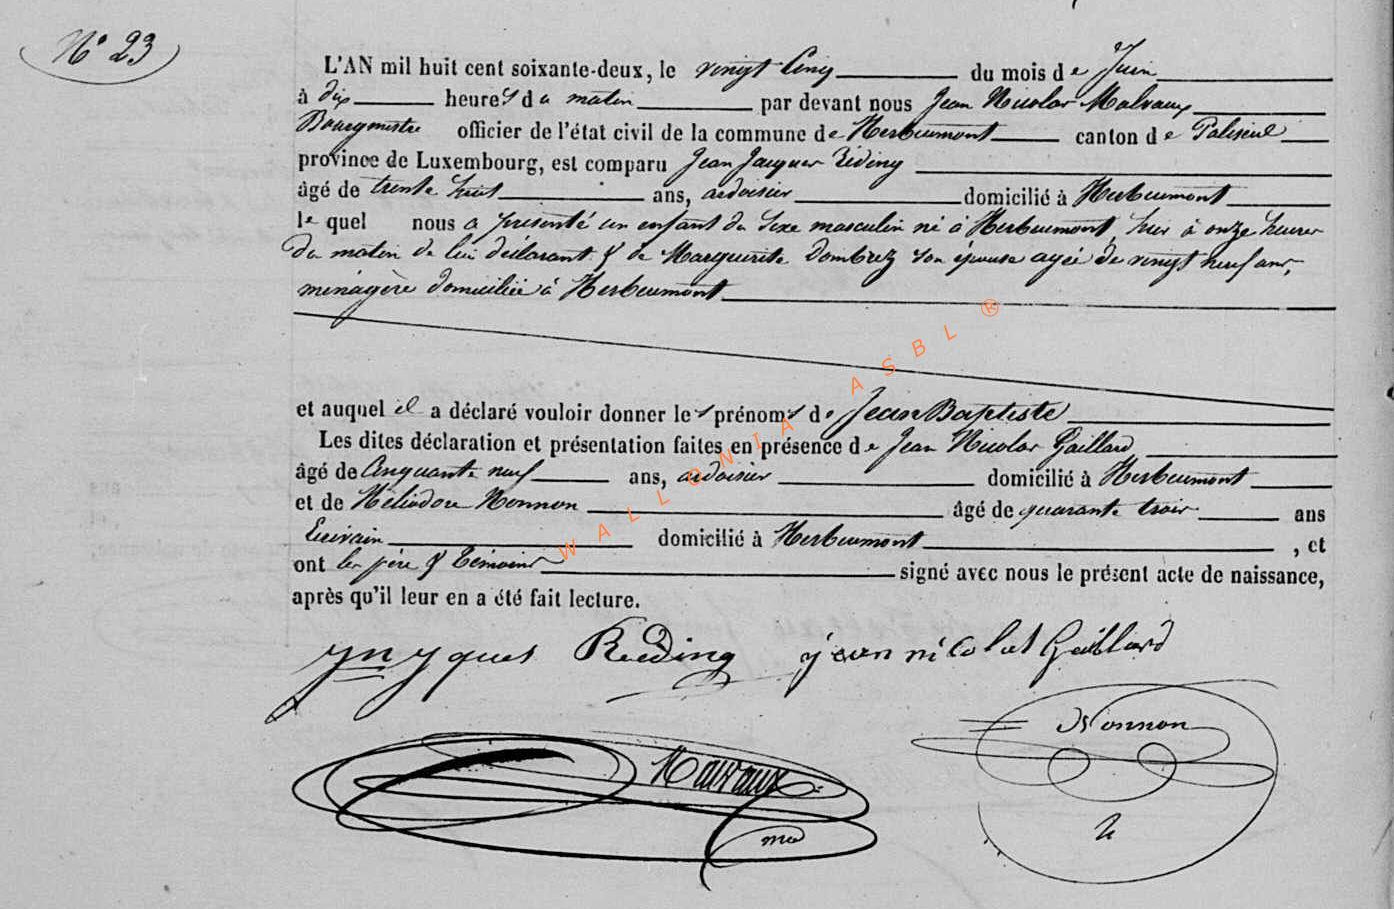 N° 23
L'AN mil huit cent soixante-deux, le vingt Cinq du mois de Juin
à dix heures du matin par devant nous Jean Nicolas Malvaux
Bourgmestre officier de l'état civil de la commune de Herbeumont canton de Paliseul
province de Luxembourg, est comparu Jean Jacques Réding
âgé de trente huit ans, ardoisier domicilié à Herbeumont
le quel nous a présenté un enfant du sexe masculin né à Herbeumont, hier à onze heures
du matin de lui déclarant & de Marguerite Dombrez son épouse agée de vingt neuf ans,
ménagère domiciliée à Herbeumont
et auquel il a déclaré vouloir donner les prénoms de Jean Baptiste
Les dites déclaration et présentation faites en présence de Jean Nicolas Gaillard
âgé de Cinquante neuf ans, ardoisier domicilié à Herbeumont
et de Héliodore Nonnon âgé de quarante trois ans
Ecrivain domicilié à Herbeumont, et
ont les père & témoins signé avec nous le présent acte de naissance,
après qu'il leur en a été fait lecture.
Reding jean nicolas Gaillard
Nonnon
Malvaux
WALLONIA ASBL ®